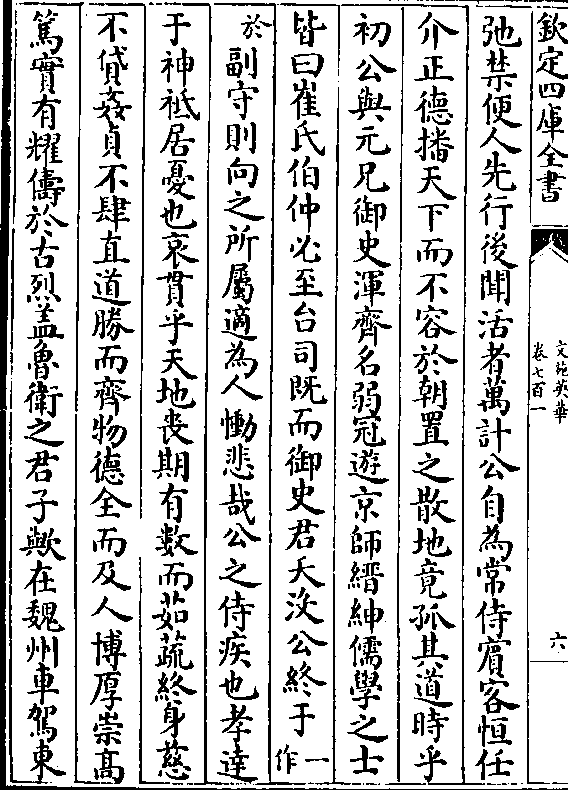 欽定四庫全書
文苑英華
卷七百一
六
弛禁便人先行後聞活者萬計公自為常侍賓客恒任
介正德播天下而不容於朝置之散地竟孤其道時乎
初公與元兄御史渾齊名弱冠遊京師縉紳儒學之士
皆曰崔氏伯仲必至台司既而御史君夭沒公終于一作
於副守則向之所屬適為人慟悲哉公之侍疾也孝達
于神祗居憂也哀貫乎天地喪期有數而茹蔬終身慈
不貸姦貞不肆直道勝而齊物德全而及人博厚崇髙
篤實有耀儔於古烈蓋魯衛之君子歟在魏州車駕東